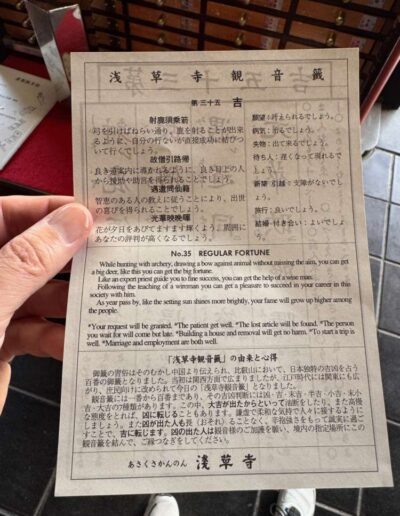 浅草寺観音籤
第三十五 吉
射鹿須乗箭
弓を引けばねらい通り、鹿を射ることが出来
るように、自分の行ないが直接成功に結びつ
いて行くでしょう。
故僧引路帰
良き道案内に導かれるように、良き目上の人
から援助や助言を得られることでしょう。
遇道同仙籍
智恵のある人の教えに従うことにより、出世
の喜びを得られることでしょう。
光華映晩暉
花が夕日をあびてますます輝くよう、周囲に
あなたの評判が高くなるでしょう。
願望：叶えられるでしょう。
病気：治るでしょう。
失物：出て来るでしょう。
待ち人：遅くなって現れるでし
ょう。
新築・引越：支障がないでしょ
う。
旅行：良いでしょう。
結婚・付き合い：よいでしょ
う。
No.35 REGULAR FORTUNE
While hunting with archery, drawing a bow against animal without missing the aim, you can get
a big deer, like this you can get the big fortune.
Like an expert priest guide you to fine success, you can get the help of a wise man.
Following the teaching of a wiseman you can get a pleasure to succeed in your career in this
society with him.
As year pass by, like the setting sun shines more brightly, your fame will grow up higher among
the people.
*Your request will be granted. *The patient get well. *The lost article will be found. *The person
you wait for will come but late. *Building a house and removal will get no harm. *To start a trip is
well. *Marriage and employment are both well.
「浅草寺観音籤」の由来と心得
御籤の習俗はそのむかし中国より伝えられ、比叡山において、日本独特の吉凶を占う
百番の御籤となりました。当初は関西方面で広まりましたが、江戸時代には関東にも広
がり、庶民向けに改められて今日の「浅草寺観音籤」となりました。
観音籤には一番から百番まであり、その吉凶判断には凶・吉・末吉・半吉・小吉・末小
吉・大吉の７種類があります。この中、大吉が出たからといって油断をしたり、また高慢
な態度をとれば、凶に転じることもあります。謙虚で柔和な気持で人々に接するようにし
ましょう。また凶が出た人も畏（おそ）れることなく、辛抱強さをもって誠実に過ごす
ことで、吉に転じます。凶の出た人は観音様のご加護を願い、境内の指定場所にこの
観音籤を結んで、ご縁つなぎをしてください。
あさくさかんのん 浅草寺